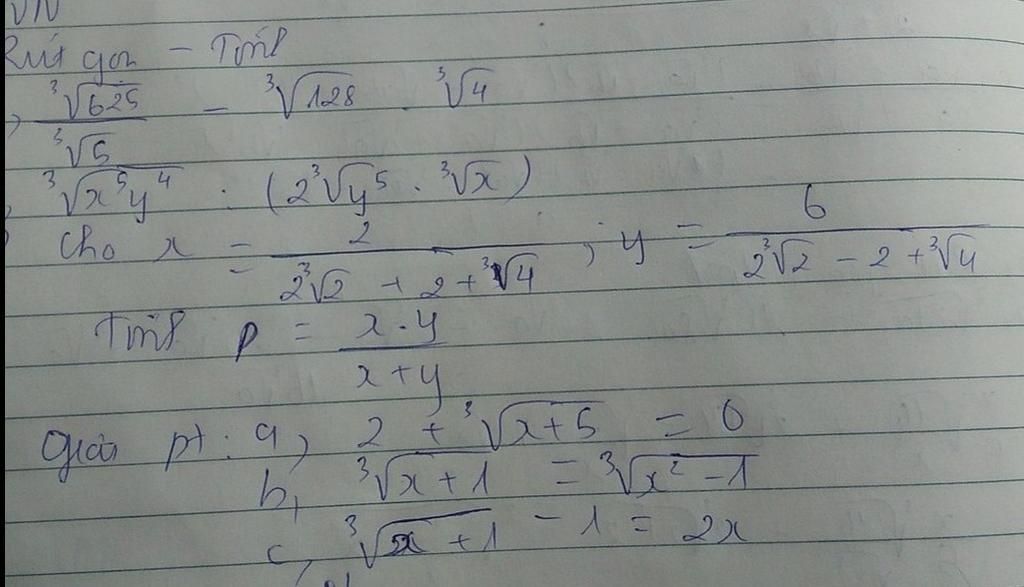 VN
Rút gọn - Tính
, ∛625 / ∛5 - ∛128 . ∛4
, ∛(x⁵y⁴) : (2∛y⁵ . ∛x)
Cho x = 2 / (2∛2 + 2 + ∛4) ; y = 6 / (2∛2 - 2 + ∛4)
Tính P = x.y / x+y
Giải pt: a, 2 + ∛(x+5) = 0
b, ∛(x+1) = ∛(x²-1)
c, ∛(x+1) - 1 = 2x